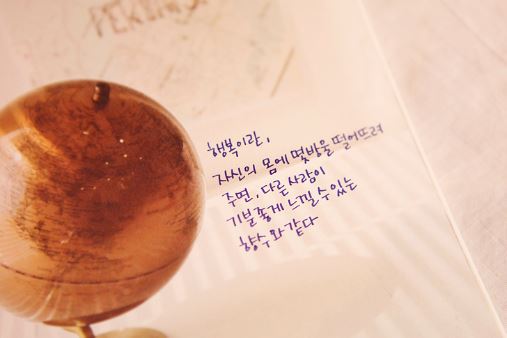 행복이란,
자신의 몸에 몇방울 떨어뜨려
주면, 다른 사람이
기분 좋게 느낄 수 있는
향수와 같다